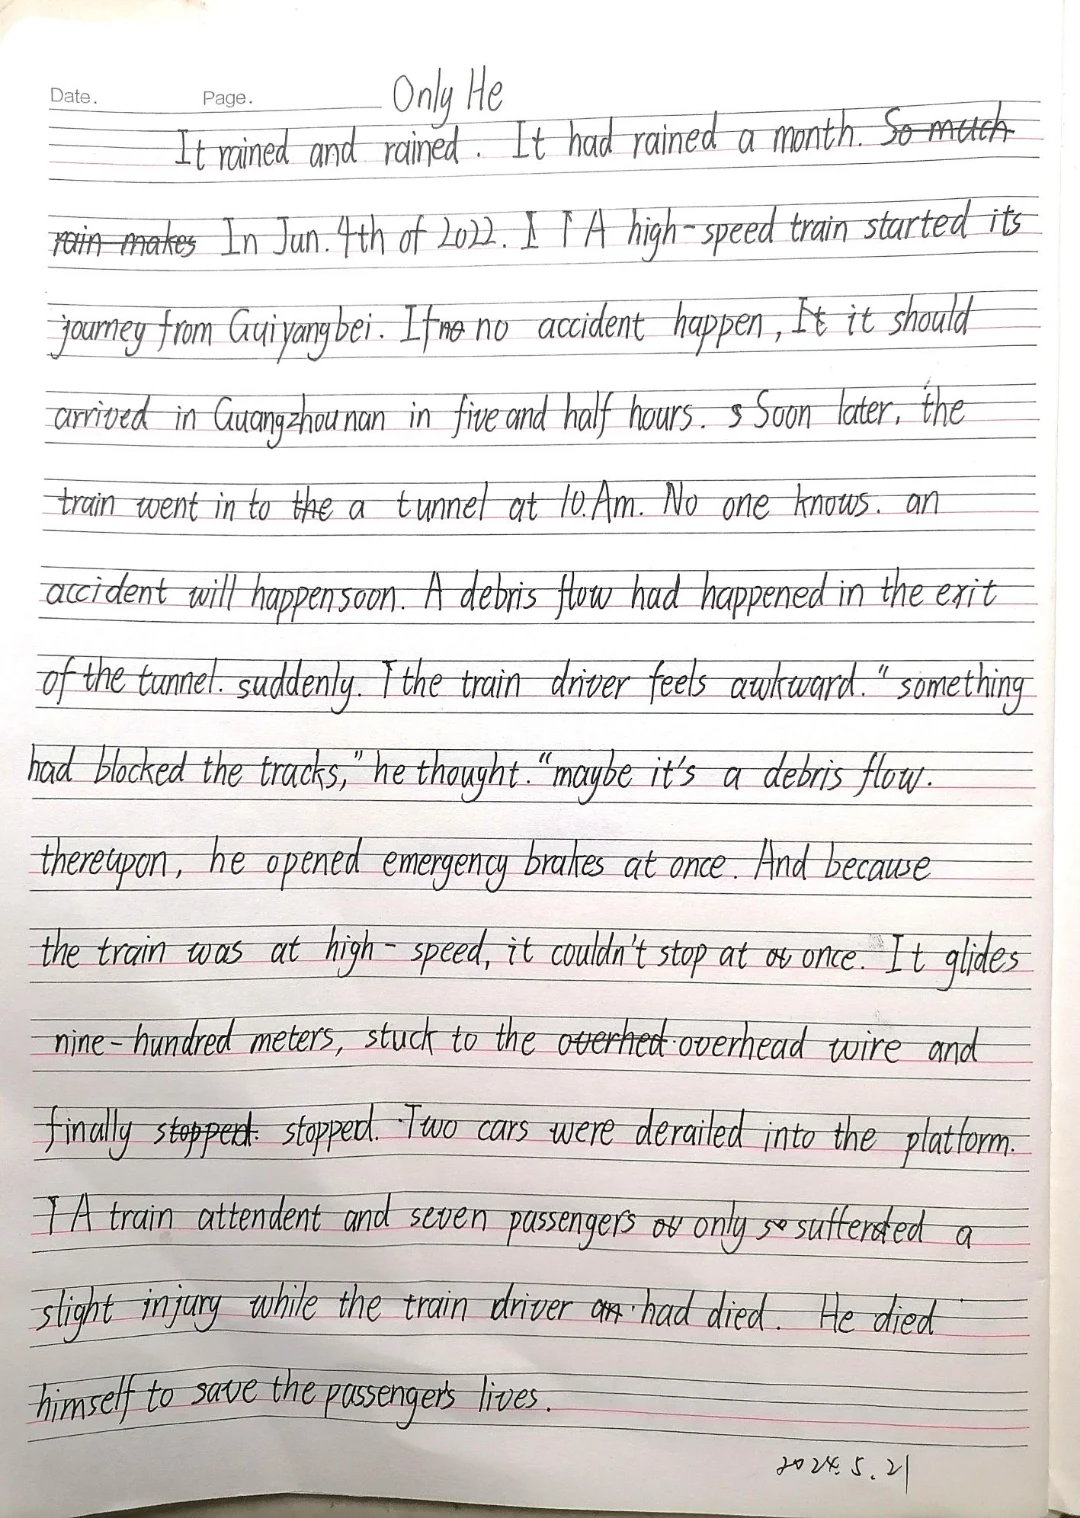 Date. Page. Only He
It rained and rained. It had rained a month. So much
rain makes In Jun. 4th of 2022. I T A high-speed train started its
journey from Guiyangbei. If no no accident happen, It it should
arrived in Guangzhounan in five and half hours. s Soon later, the
train went in to the a tunnel at 10.Am. No one knows. an
accident will happen soon. A debris flow had happened in the exit
of the tunnel. suddenly. T the train driver feels awkward. "something
had blocked the tracks," he thought. "maybe it's a debris flow.
thereupon, he opened emergency brakes at once. And because
the train was at high-speed, it couldn't stop at at once. It glides
nine-hundred meters, stuck to the overhed overhead wire and
finally stopped. stopped. Two cars were derailed into the platform.
T A train attendent and seven passengers only so suffersted a
slight injury while the train driver an had died. He died
himself to save the passengers lives.
2024.5.21